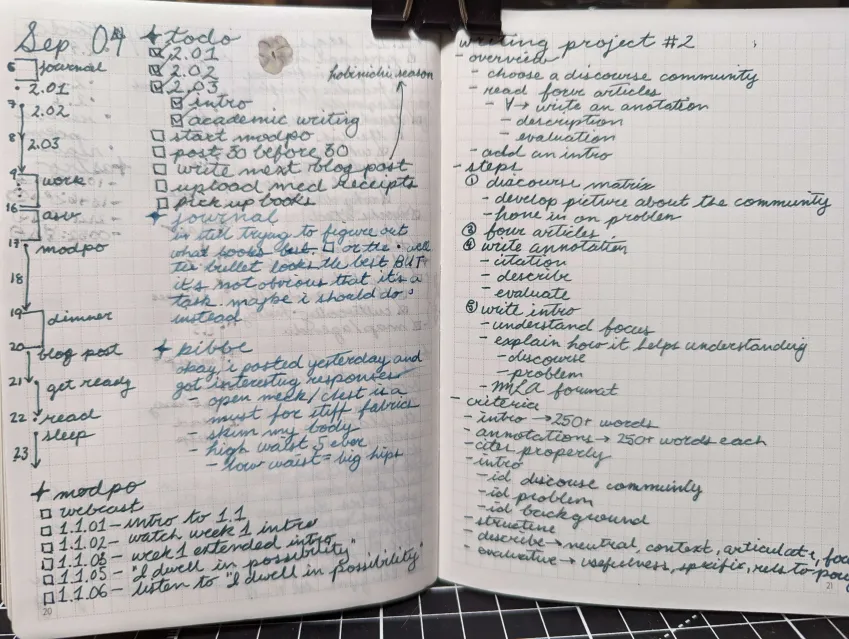 Sep 04
6 journal
2.01
7 2.02
8 2.03
9 work
16 asw
17 modpo
18
19 dinner
20 blog post
21 get ready
22 read
sleep
23
todo
2.01
2.02
2.03
intro
academic writing
start modpo
post 30 before 30
write next blog post
upload med receipts
pick up books
hobinichi season
journal
is till trying to figure out
what looks best. □ or the • well
the bullet looks the best BUT
it's not obvious that it's a
task. maybe i should do
instead
kibbe
okay i posted yesterday and
got interestng responses
- open neck/chest is a
must for stiff fabrics
- skim my body
- high waist 5 ever
- low waist = big hips
modpo
webcast
1.1.01 - intro to 1.1
1.1.02 - watch week 1 intro
1.1.03 - week 1 extended intro
1.1.05 - "I dwell in possibility"
1.1.06 - listen to "I dwell in possibility"
20
writing project #2
- overview
- choose a discourse community
- read four articles
- ∀ → write an anotation
- description
- evaluation
- add an intro
- steps
① discourse matrix
- develop picture about the community
- hone in on problem
③ four articles
④ write annotation
- citation
- describe
- evaluate
⑤ write intro
- understand focus
- explain how it helps understanding
- discourse
- problem
- MLA format
- criteria
- intro → 250+ words
- annotations → 250+ words each
- cites properly
- intro
- id discouse community
- id problem
- id background
- structure
- describe → neutral, context, articulate,
- evaluative → usefulness, spefifix, rels to
21